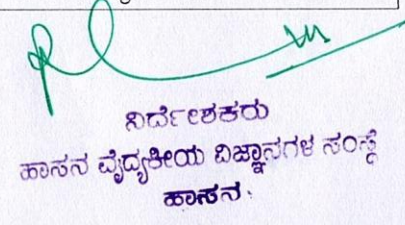 ನಿರ್ದೇಶಕರು
ಹಾಸನ ವೈದ್ಯಕೀಯ ವಿಜ್ಞಾನಗಳ ಸಂಸ್ಥೆ
ಹಾಸನ.